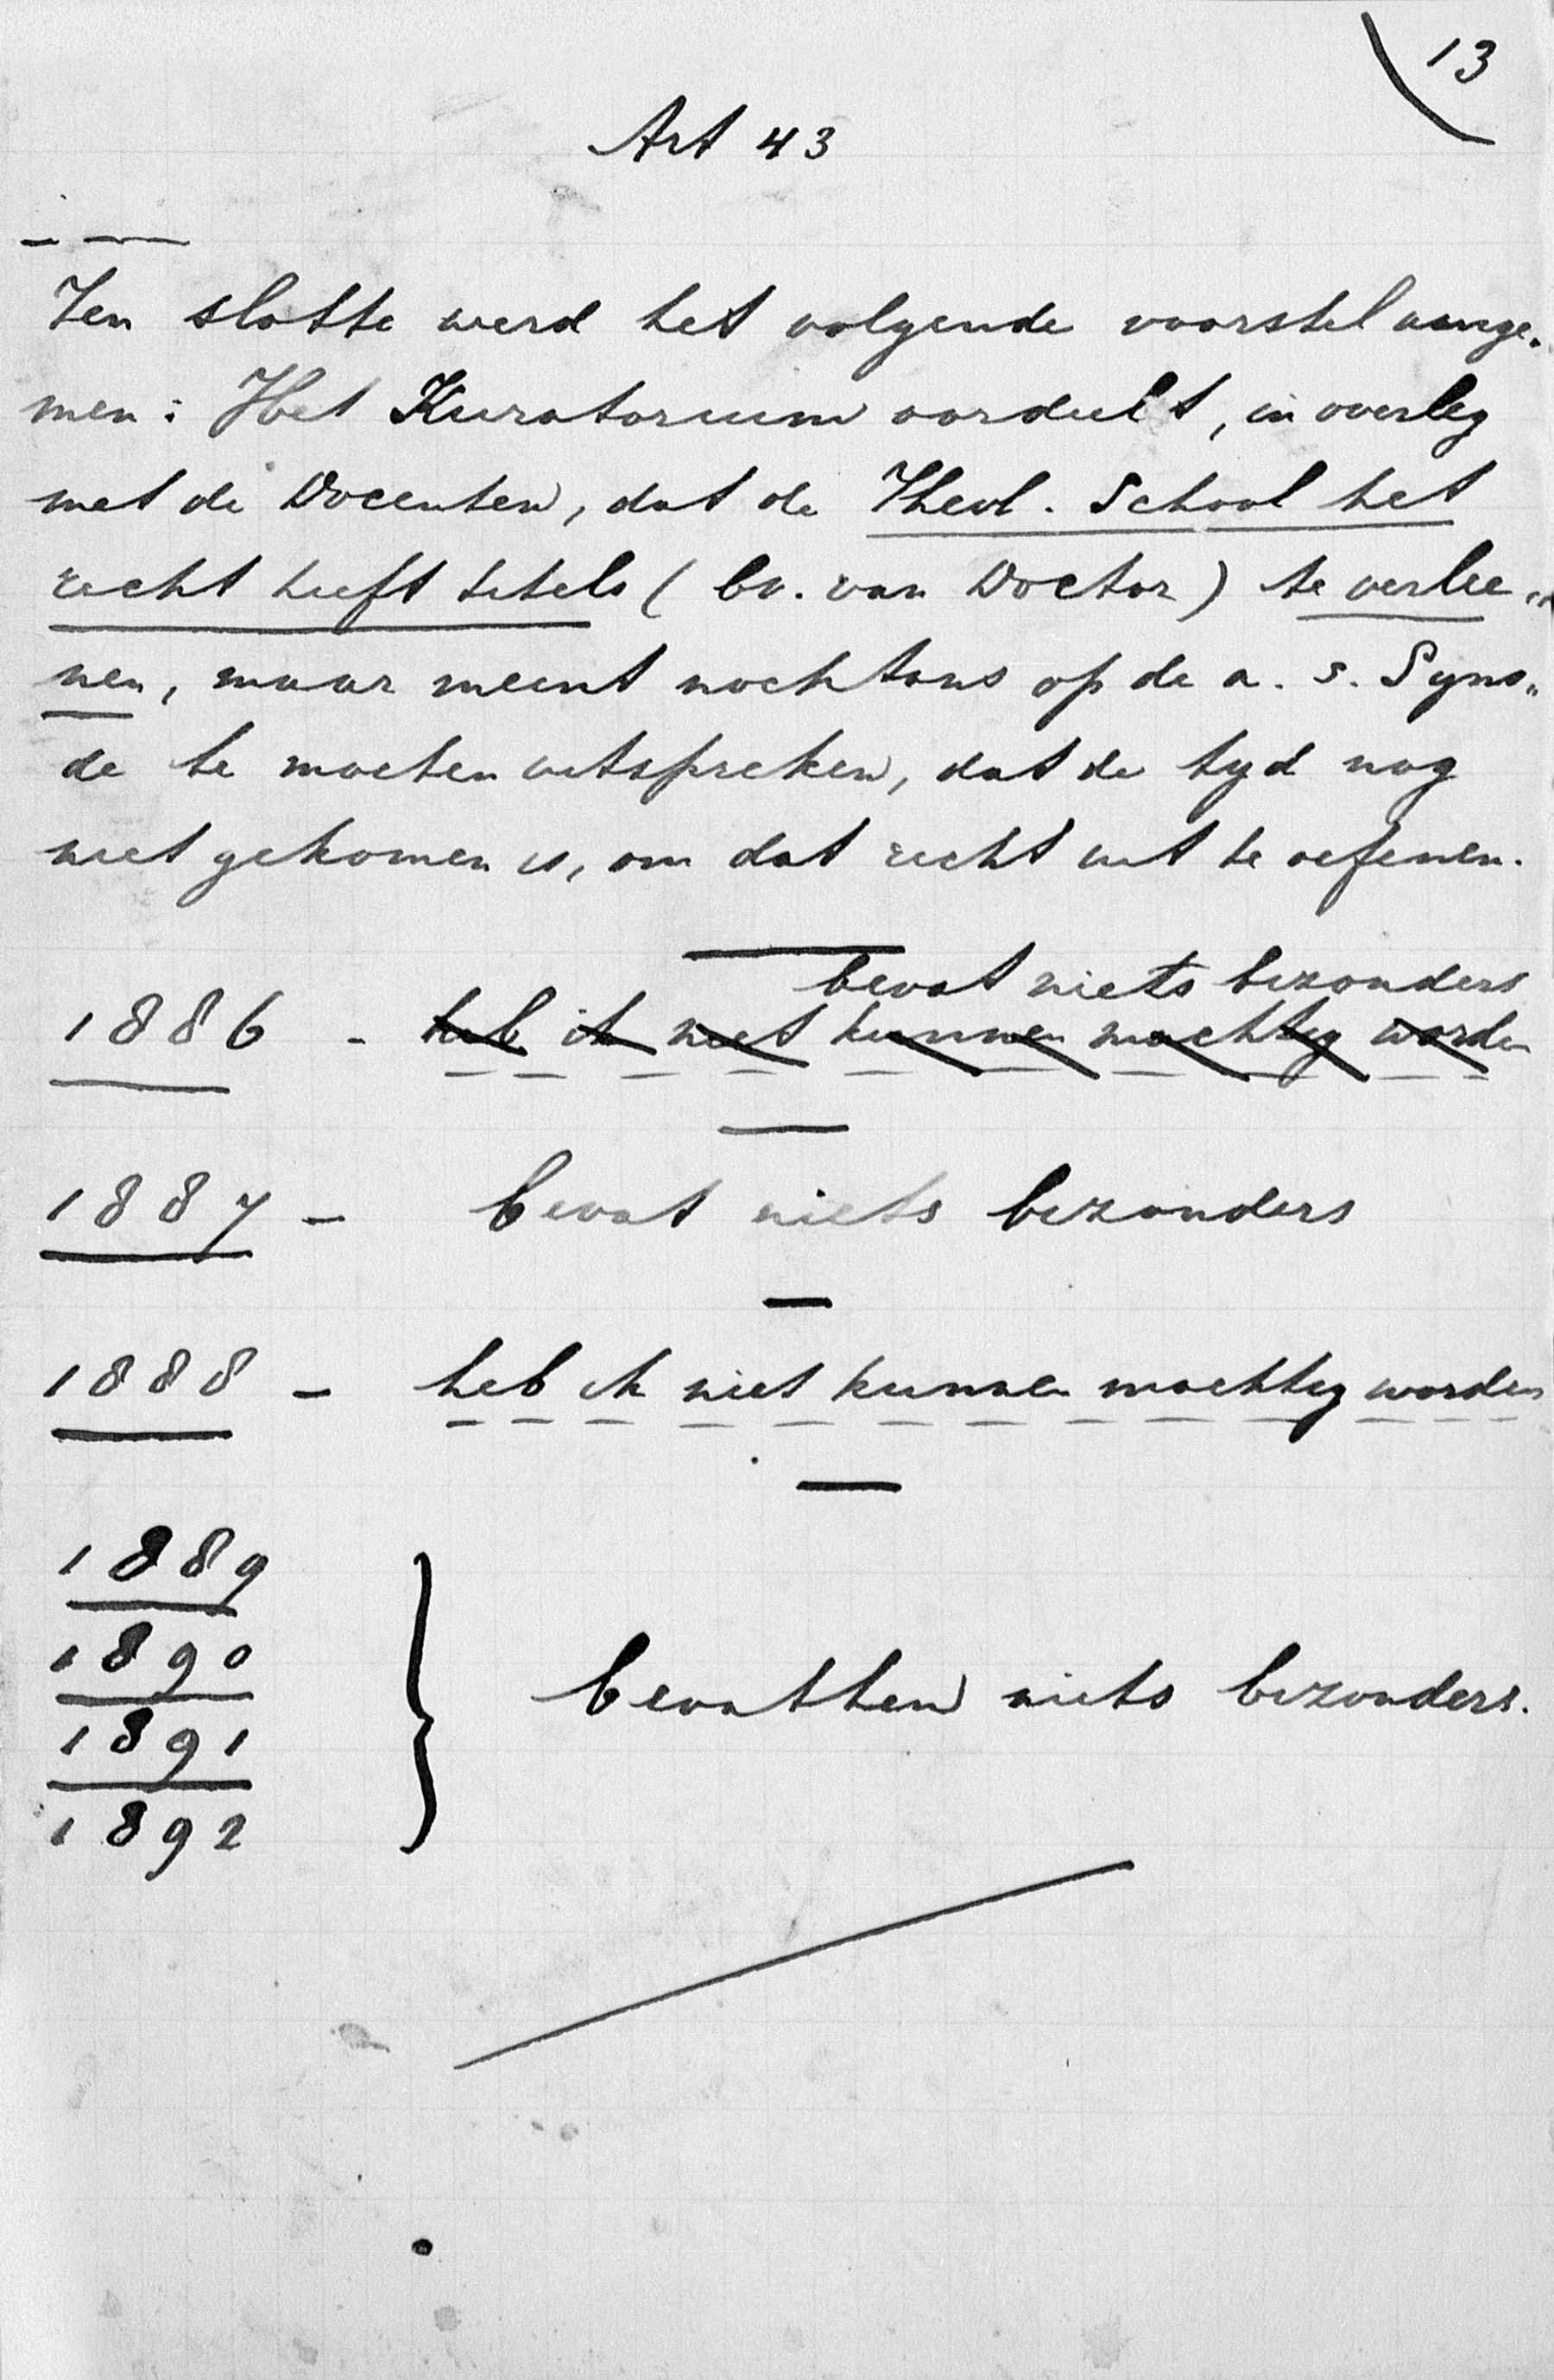 13
Art 43
Ten slotte werd het volgende voorstel aange-
men: Het Kuratorium oordeelt, in overleg
met de Docenten, dat de Theol. School het
recht heeft titels (bv. van Doctor) te verlee-
nen, maar meent nochtans op de a. s. Syno-
de te moeten uitspreken, dat de tyd nog
niet gekomen is, om dat recht uit te oefenen.
bevat niets bezonders
1886 - heb ik niet kunnen machtig worden
1887 - bevat niets bezonders
1888 - heb ik niet kunnen machtig worden
1889
1890
bevatten niets bezonders.
1891
1892